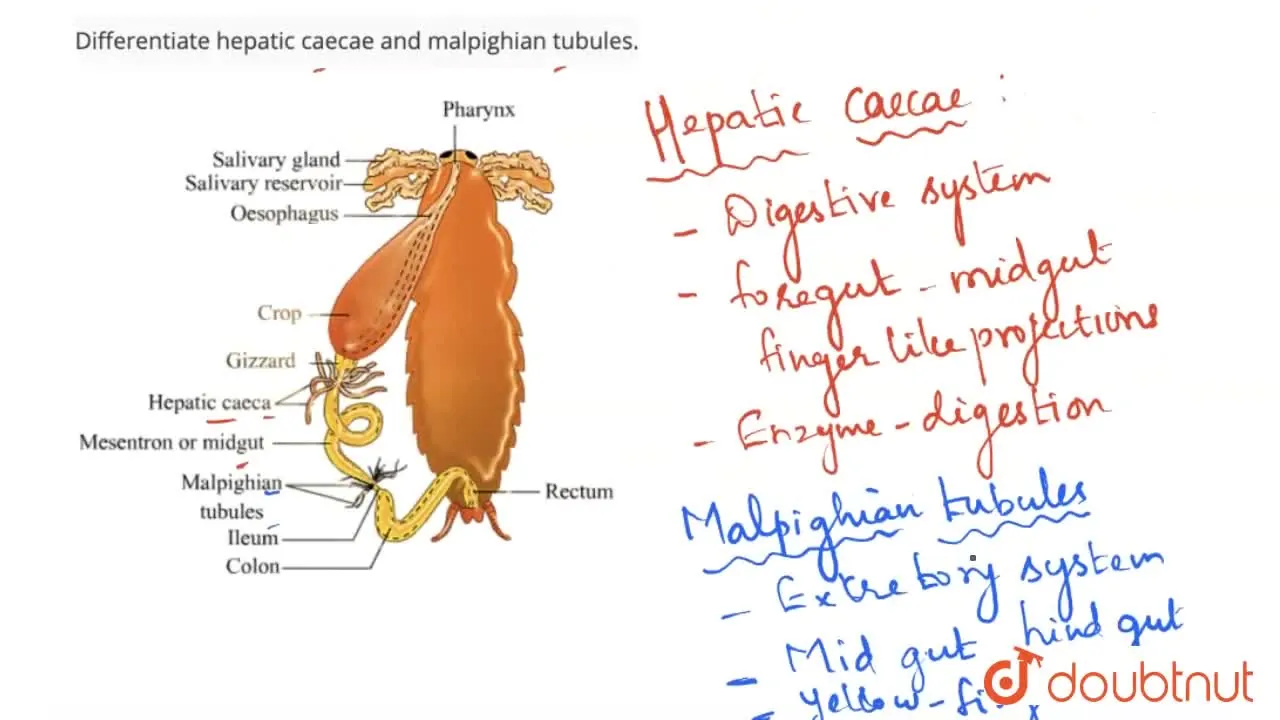 Differentiate hepatic caecae and malpighian tubules.
Pharynx
Salivary gland
Salivary reservoir
Oesophagus
Crop
Gizzard
Hepatic caeca
Mesentron or midgut
Malpighian
tubules
Ileum
Colon
Rectum
Hepatic caecae :
- Digestive system
- foregut - midgut
finger like projections
- Enzyme - digestion
Malpighian tubules
- Excretory system
- Mid gut hind gut
- Yellow -
doubtnut